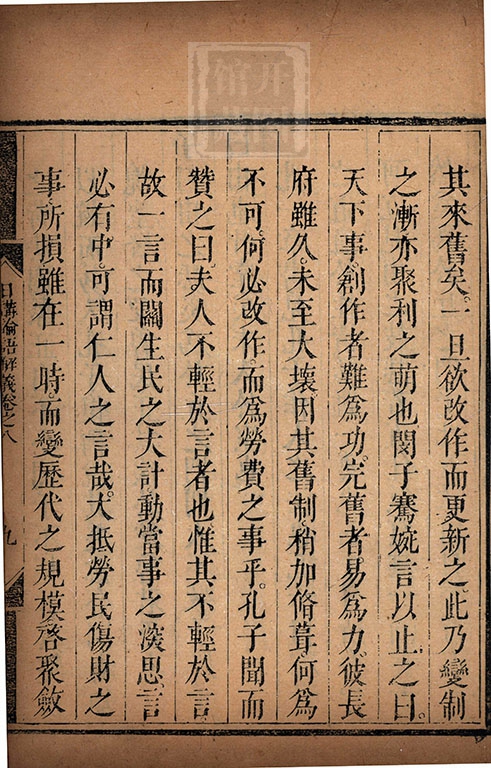 其來舊矣。一旦欲改作而更新之。此乃變制
之漸亦聚利之萌也閔子騫婉言以止之曰。
天下事。創作者難為功。完舊者易為力。彼長
府雖久。未至大壞因其舊制。稍加脩葺何為
不可。何必改作。而為勞費之事乎。孔子聞而
贊之曰。夫人不輕於言者也惟其不輕於言
故一言而關生民之大計動當事之深思言
必有中。可謂仁人之言哉。大抵勞民傷財之
事。所損雖在一時。而變歷代之規模啓聚斂
日講論語解義卷之八
九